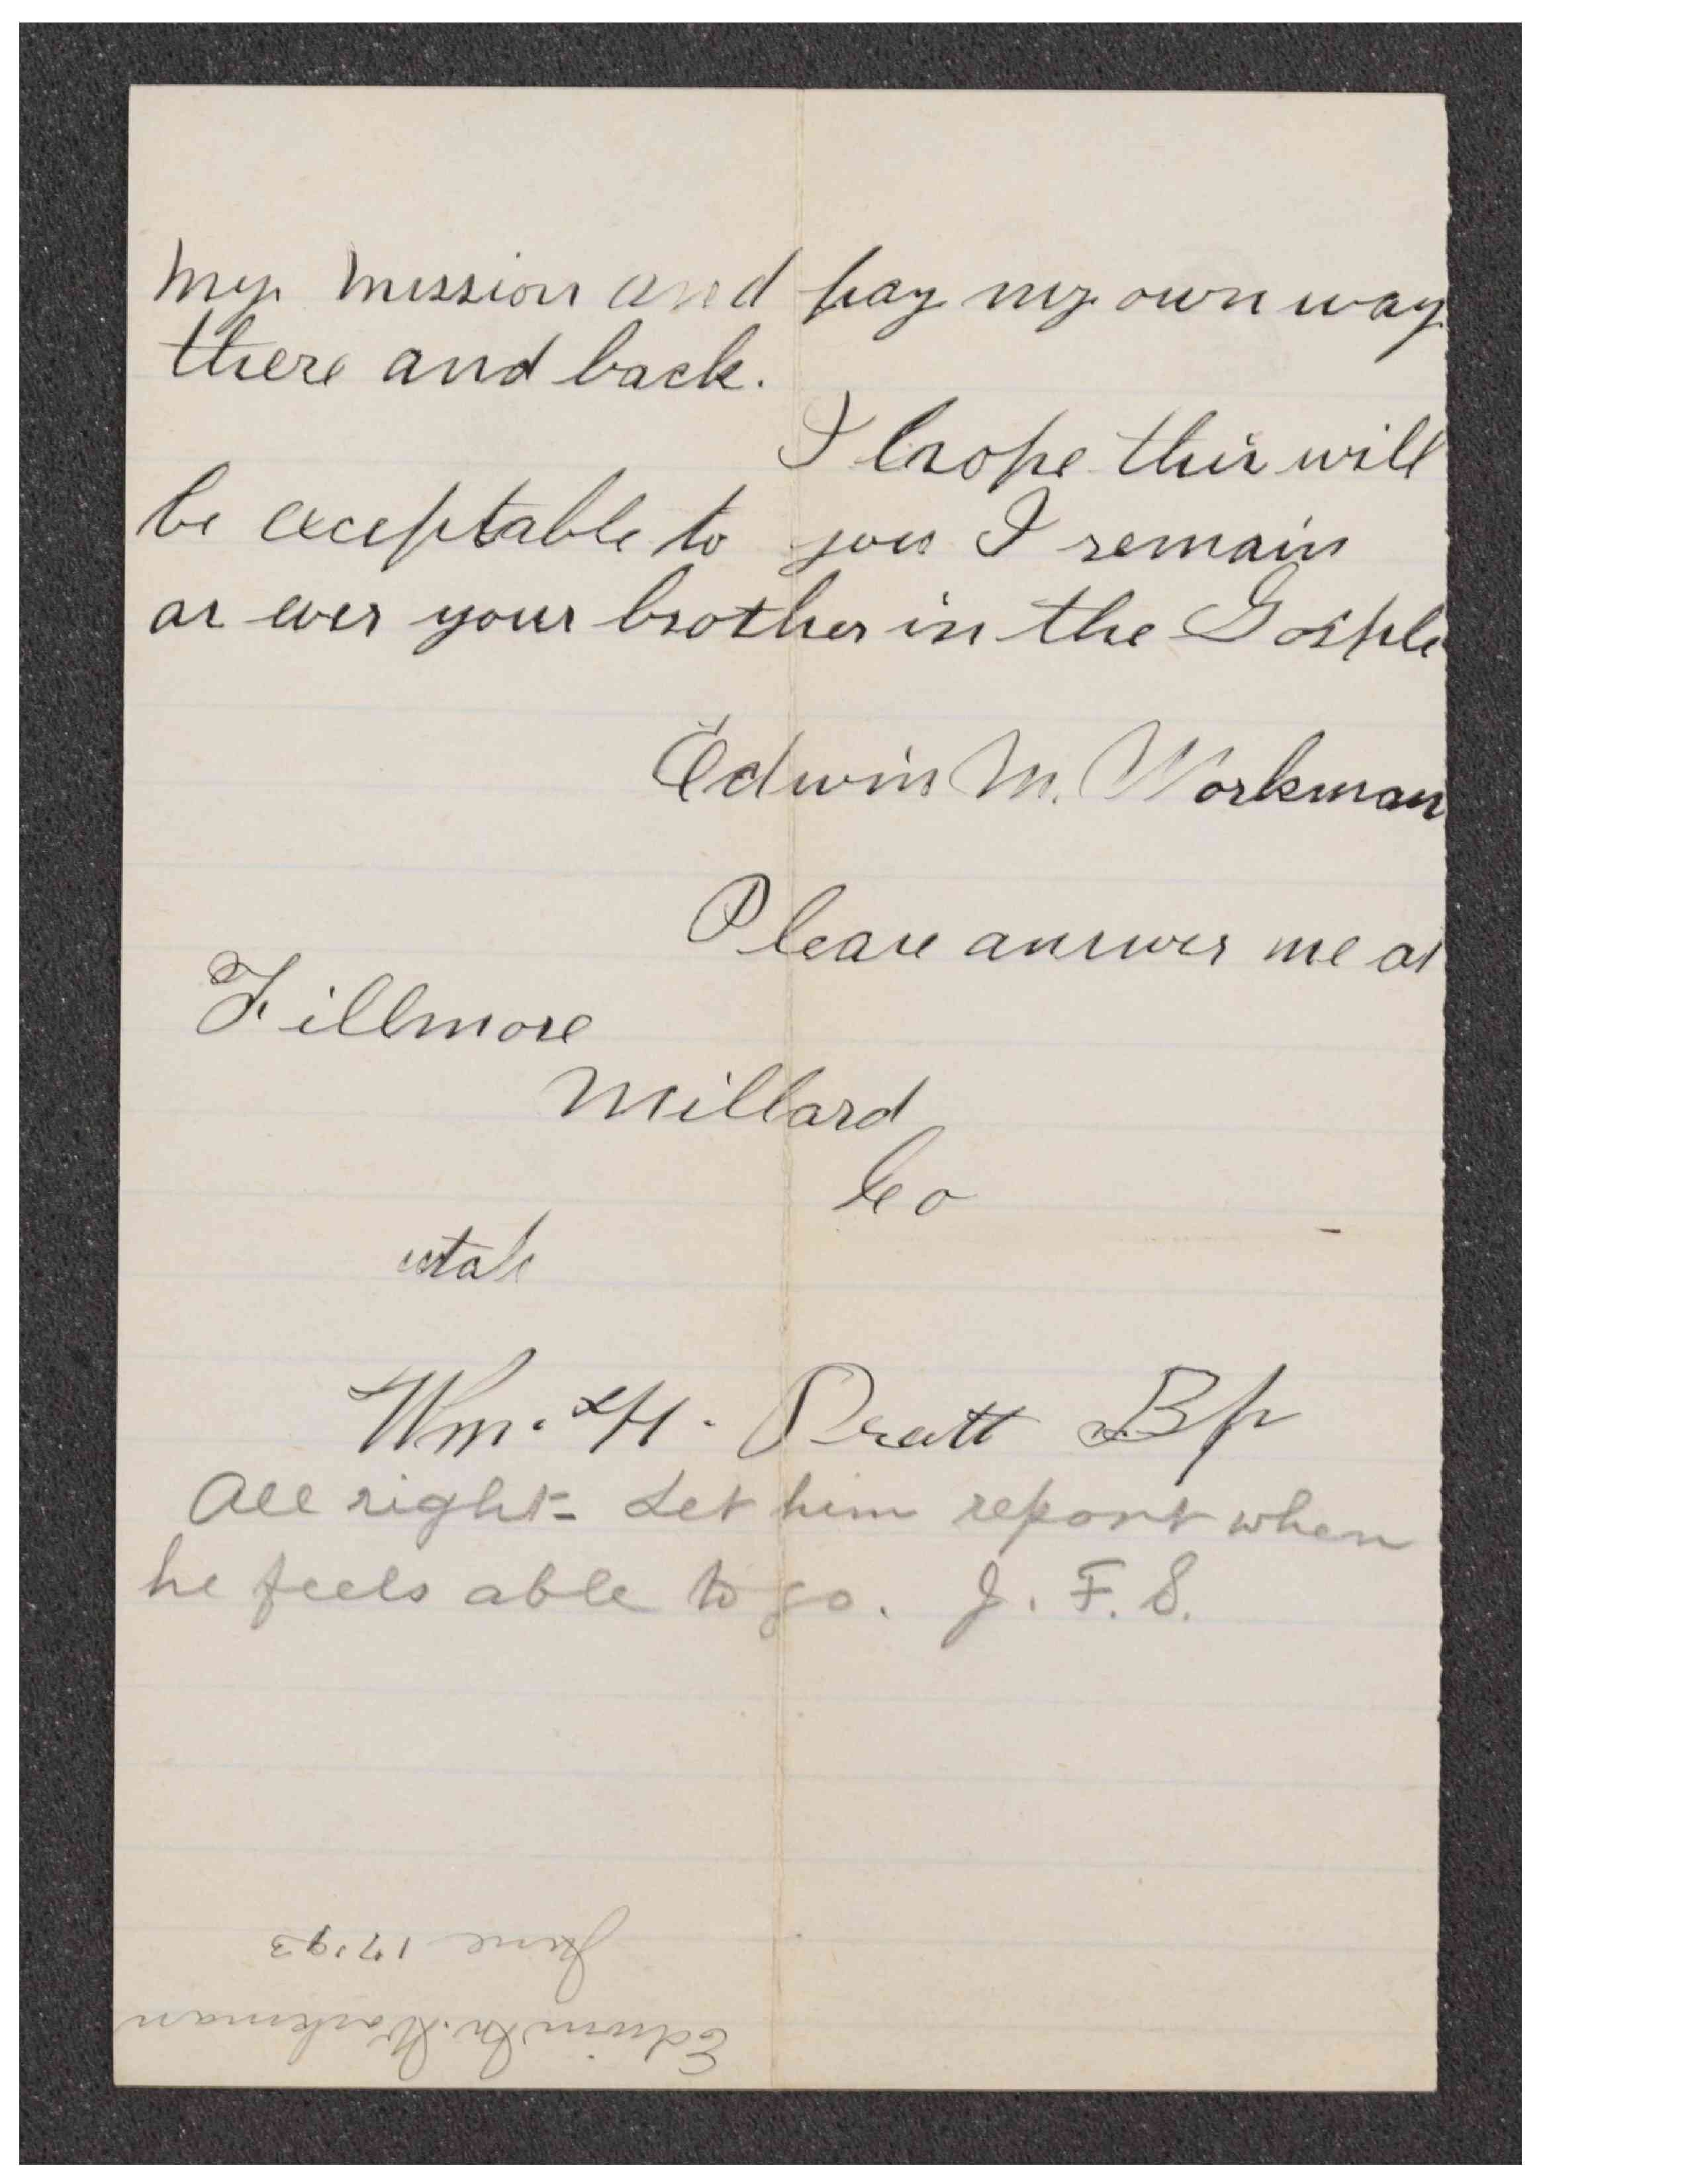 my mission and pay my own way
there and back.
I hope this will
be exceptable to you I remain
as ever your brother in the Gosple
Edwin M. Workman
Please answer me at
Fillmore
Millard
Co
utah
Wm. H. Pratt Bp
All right - Let him report when
he feels able to go. J. F. S.
Edwin M. Workman
June 17 '93